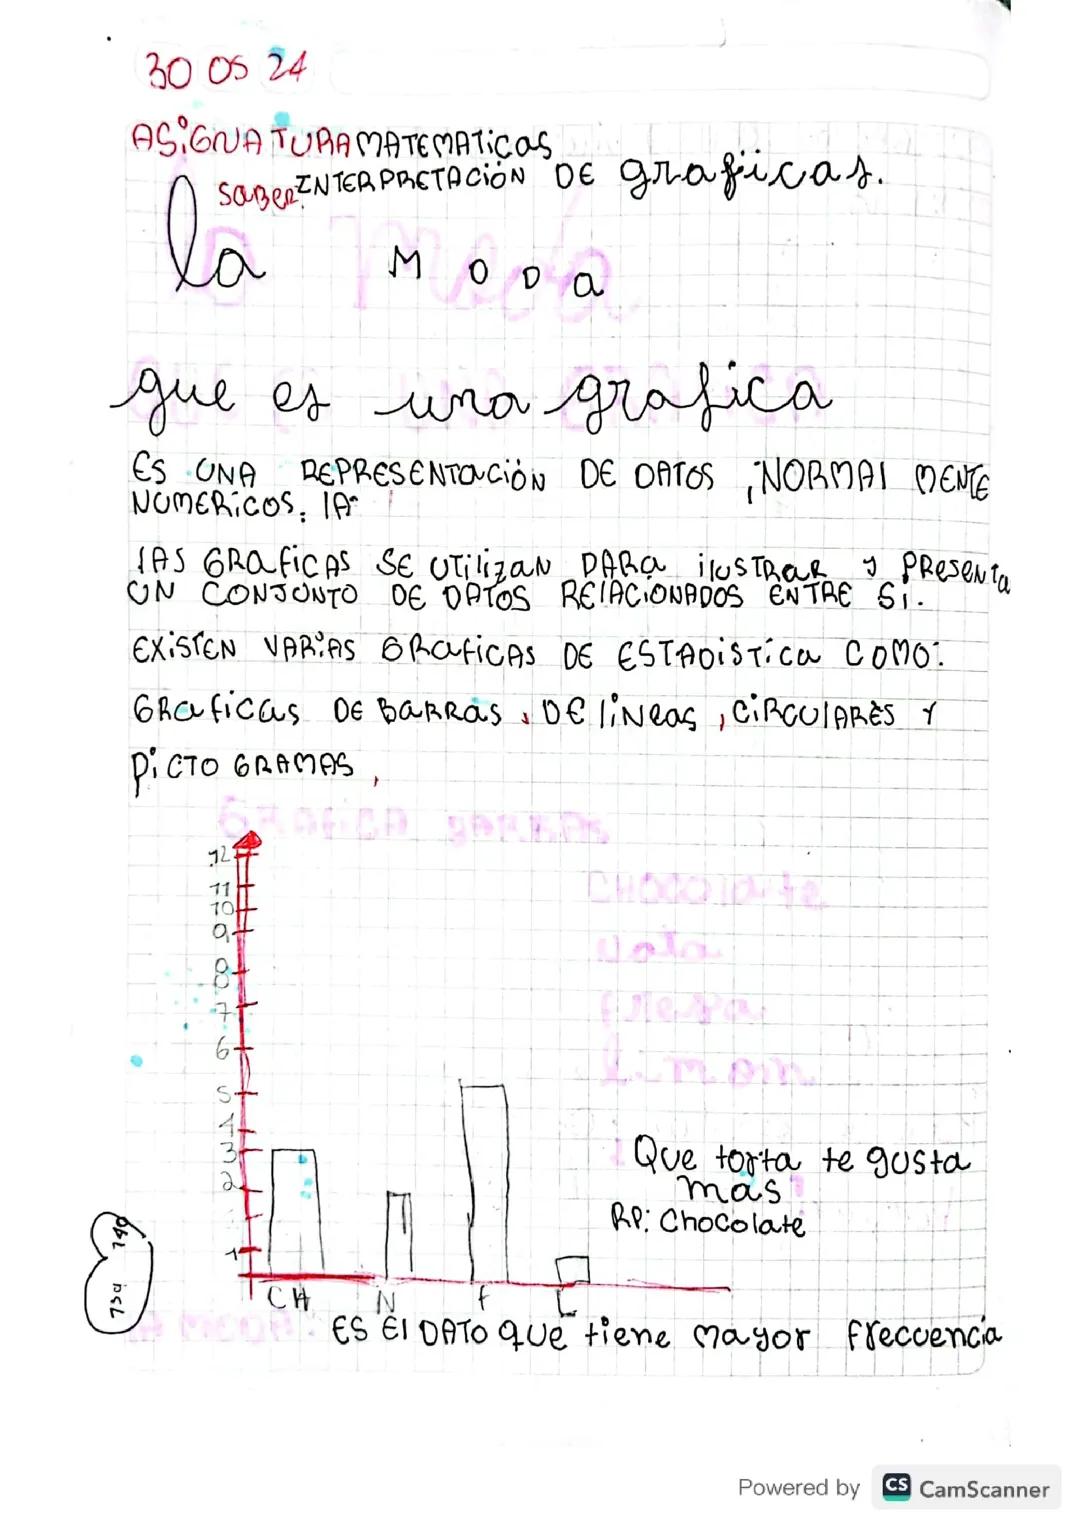 30 05 24
ASiGNATURA MATEMATicas
SaBER INTERPRETACIÓN DE graficas.
la MODa
la Moda
que es una grafica
ES UNA REPRESENTaCiÓN DE DATOS , NORMAl MENTE
NUMERiCOS. lA
lAS GRaficAS SE UTilizaN PARa ilUSTRaR y PRESENTa
UN CONJUNTO DE DATOS RElACiONADOS ENTRE Si.
EXiSTEN VARiAS GRaficAS DE ESTADiSTica COMO:
GRaficas DE BaRRas , DE liNEas , CiRCUlARES Y
PiCTO GRAMAS ,
GRAfiCA BARRAS
12
11
10
9
8
7
6
5
4
3
2
1
CHOCOlate
fresa
limon
Que torta te gusta
mas
RP: Chocolate
CH N f L
lA MODA: ES El DATO QUE tiene mayor frecuencia
139 140
Powered by CS CamScanner